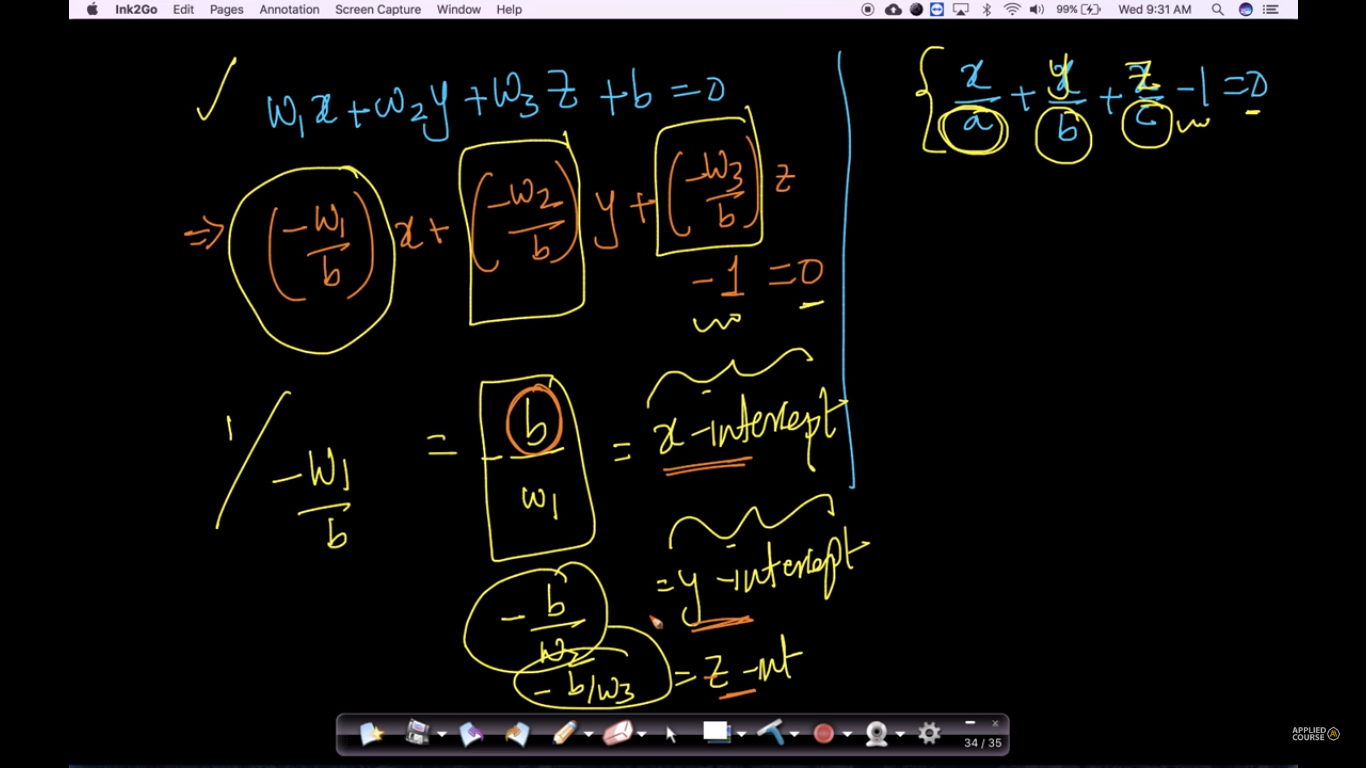 Ink2Go Edit Pages Annotation Screen Capture Window Help 99% Wed 9:31 AM
✓ w₁x + w₂y + w₃z + b = 0
⇒ (-w₁/b) x + (-w₂/b) y + (-w₃/b) z
-1 = 0
1 / -w₁/b = -b/w₁ = x-intercept
-b/w₂ = y-intercept
-b/w₃ = z-int
x/a + y/b + z/c - 1 = 0
34 / 35
APPLIED
COURSE